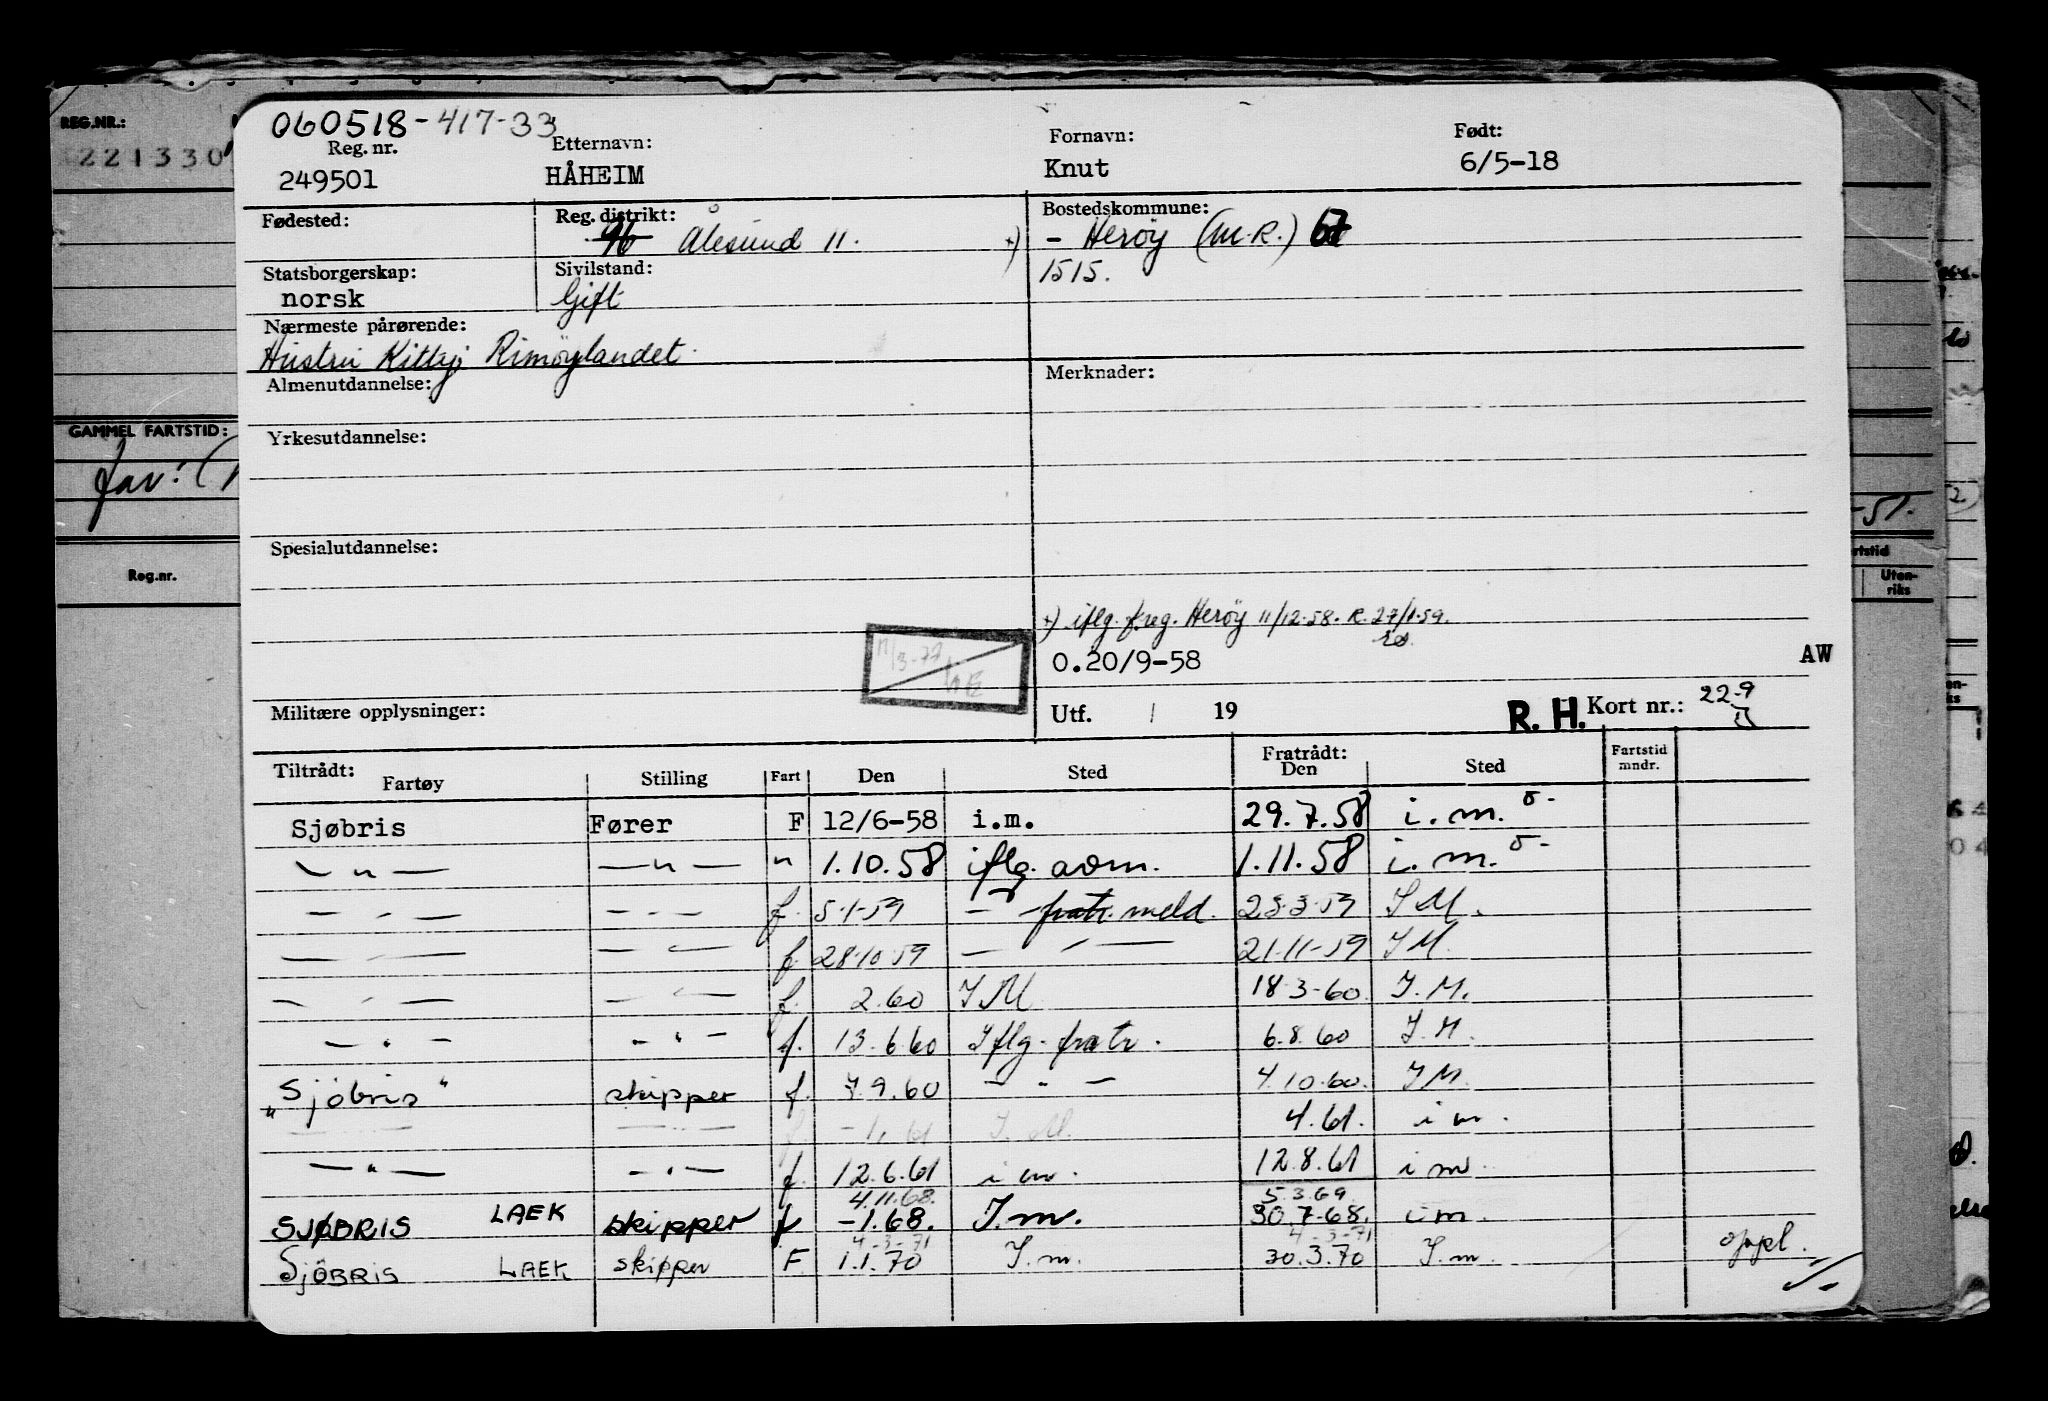 060518-417-33
REG.NR.:
221330
Reg. nr. Etternavn: Fornavn: Født:
249501 HÅHEIM Knut 6/5-18
Fødested: Reg. distrikt: Bostedskommune:
96 Ålesund 11. +) - Herøy (M.R.)
1515.
Statsborgerskap: Sivilstand:
norsk Gift
Nærmeste pårørende:
Hustru Kitty, Rimøylandet.
Almenutdannelse: Merknader:
GAMMEL FARTSTID: Yrkesutdannelse:
fav: (
-51.
Spesialutdannelse:
Reg.nr.
Uten-
riks
+) iflg. f.reg. Herøy 11/12-58. R. 27/1-59.
O.20/9-58 AW
11/3-77
Militære opplysninger: Utf. / 19 R. H. Kort nr.: 22-9
Tiltrådt: Fratrådt: Fartstid
mndr.
Fartøy Stilling Fart Den Sted Den Sted
Sjøbris Fører F 12/6-58 i.m. 29.7.58 i.m. ō-
— " — — " — " 1.10.58 iflg. aom. 1.11.58 i.m. ō-
— " — — " — f. 5-1-59 — fratr. meld. 25-3-59 I M.
— " — — " — f. 28-10-59 — " — 21-11-59 I M.
— " — — " — f. 2.60 I M 18-3-60. I. M.
— " — — " — f. 13.6.60 Iflg. fratr. 6.8.60 I. M.
"Sjøbris" skipper f. 7.9.60 — " — 4.10.60. I M.
— " — — " — f. -1.61 I. M. 4.61. i m.
— " — — " — f. 12.6.61 i m. 12.8.61 i m.
4.11.68. 5.3.69
SJØBRIS LAEK skipper f -1.68. I.m. 30.7-68. i m.
4-3-71 4-3-71
Sjøbris LAEK skipper F 1.1.70 I.m. 30.3.70 I.m. oppl.